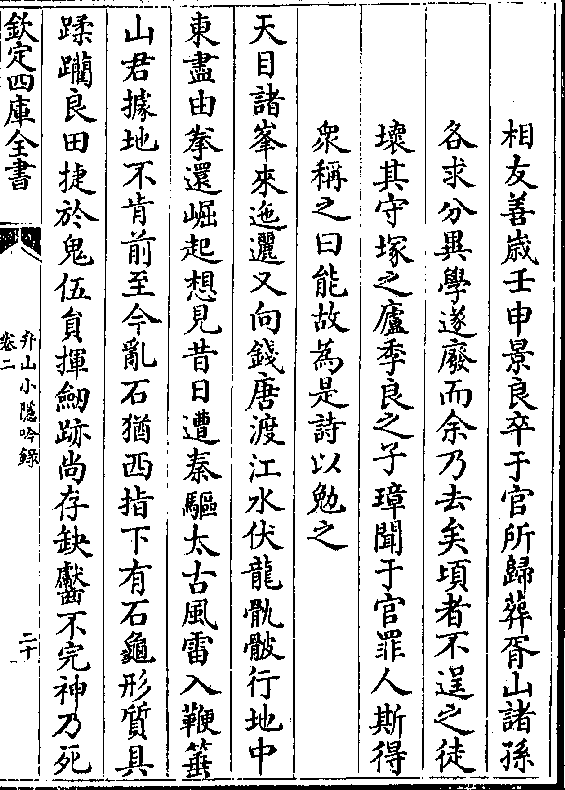 相友善歳壬申景良卒于官所歸葬胥山諸孫
各求分異學遂廢而余乃去矣頃者不逞之徒
壞其守塚之廬季良之子璋聞于官罪人斯得
衆稱之曰能故為是詩以勉之
天目諸峯來迤邐又向錢唐渡江水伏龍骩骳行地中
東盡由拳還崛起想見昔日遭秦驅太古風雷入鞭箠
山君據地不肯前至今亂石猶西指下有石龜形質具
蹂躪良田捷於鬼伍員揮劒跡尚存缺齾不完神乃死
欽定四庫全書
弁山小隠吟錄
卷二
二十